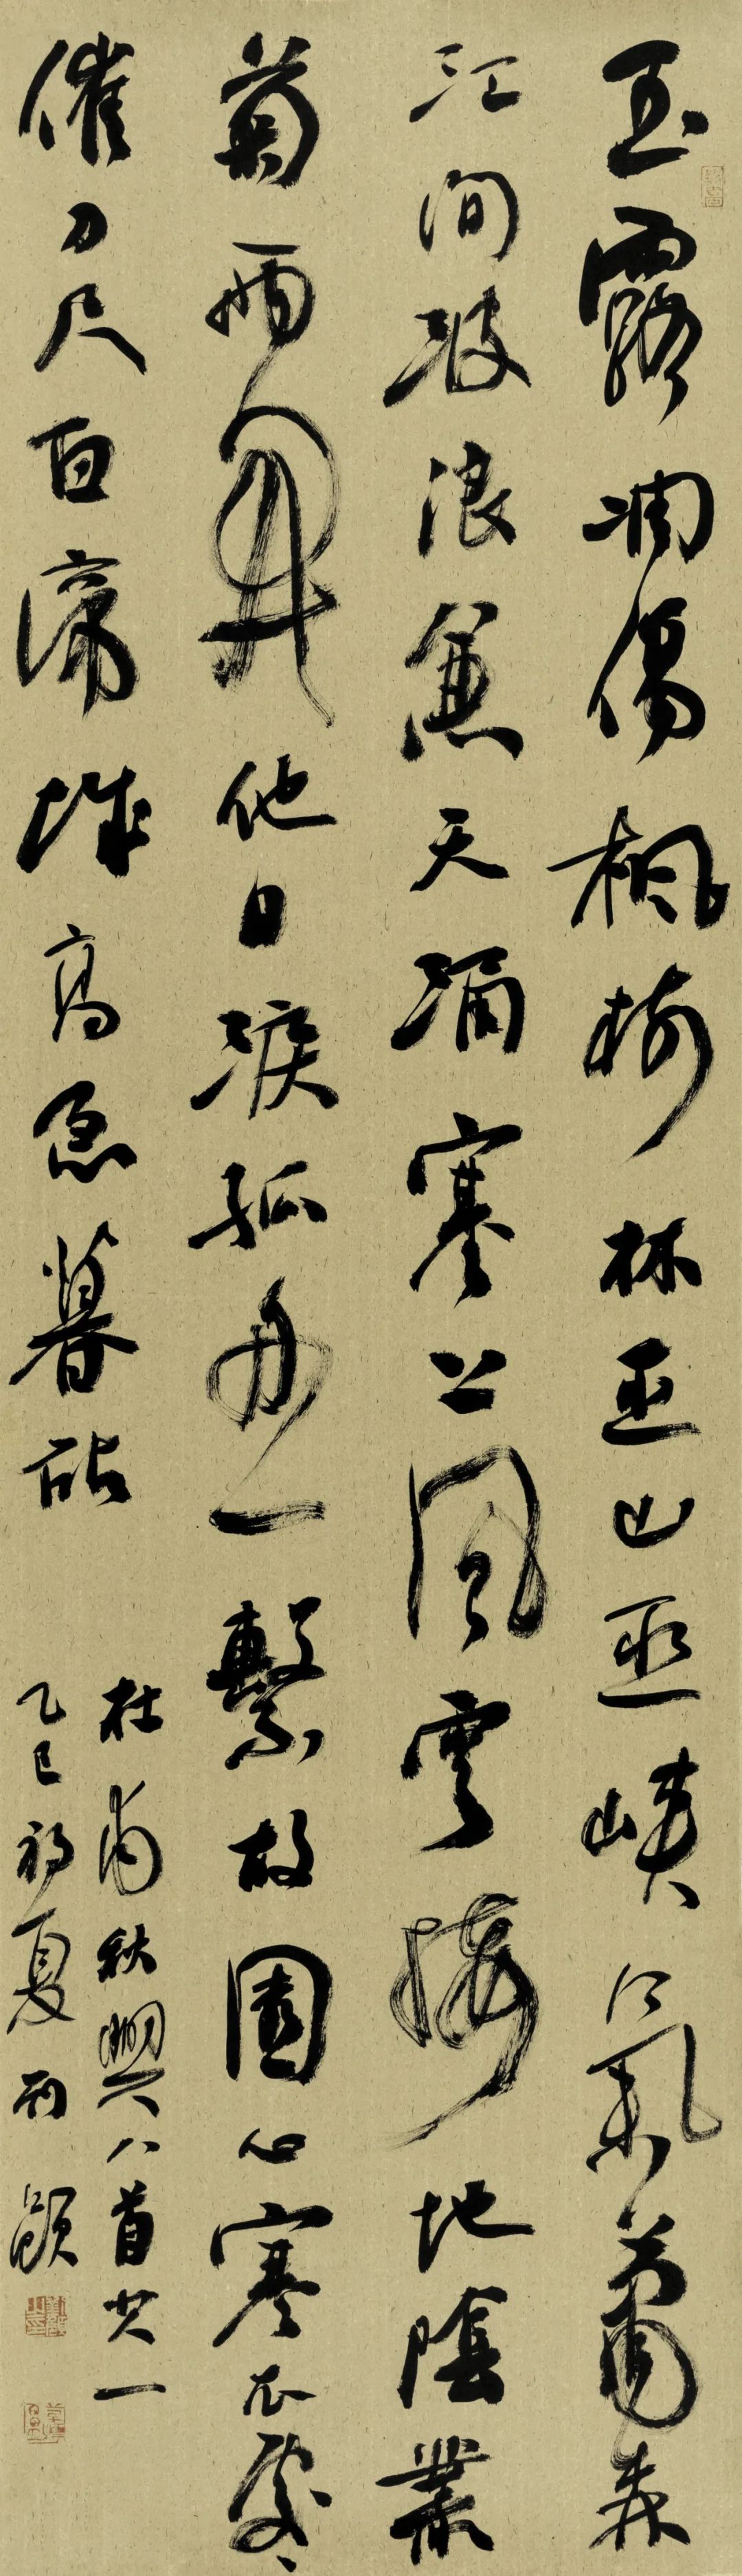 玉露凋傷楓樹林巫山巫峽氣蕭森
江間波浪兼天涌塞上風雲接地陰叢
菊兩開他日淚孤舟一繫故園心寒衣處〻
催刀尺白帝城高急暮砧
杜甫秋興八首其一
乙巳初夏